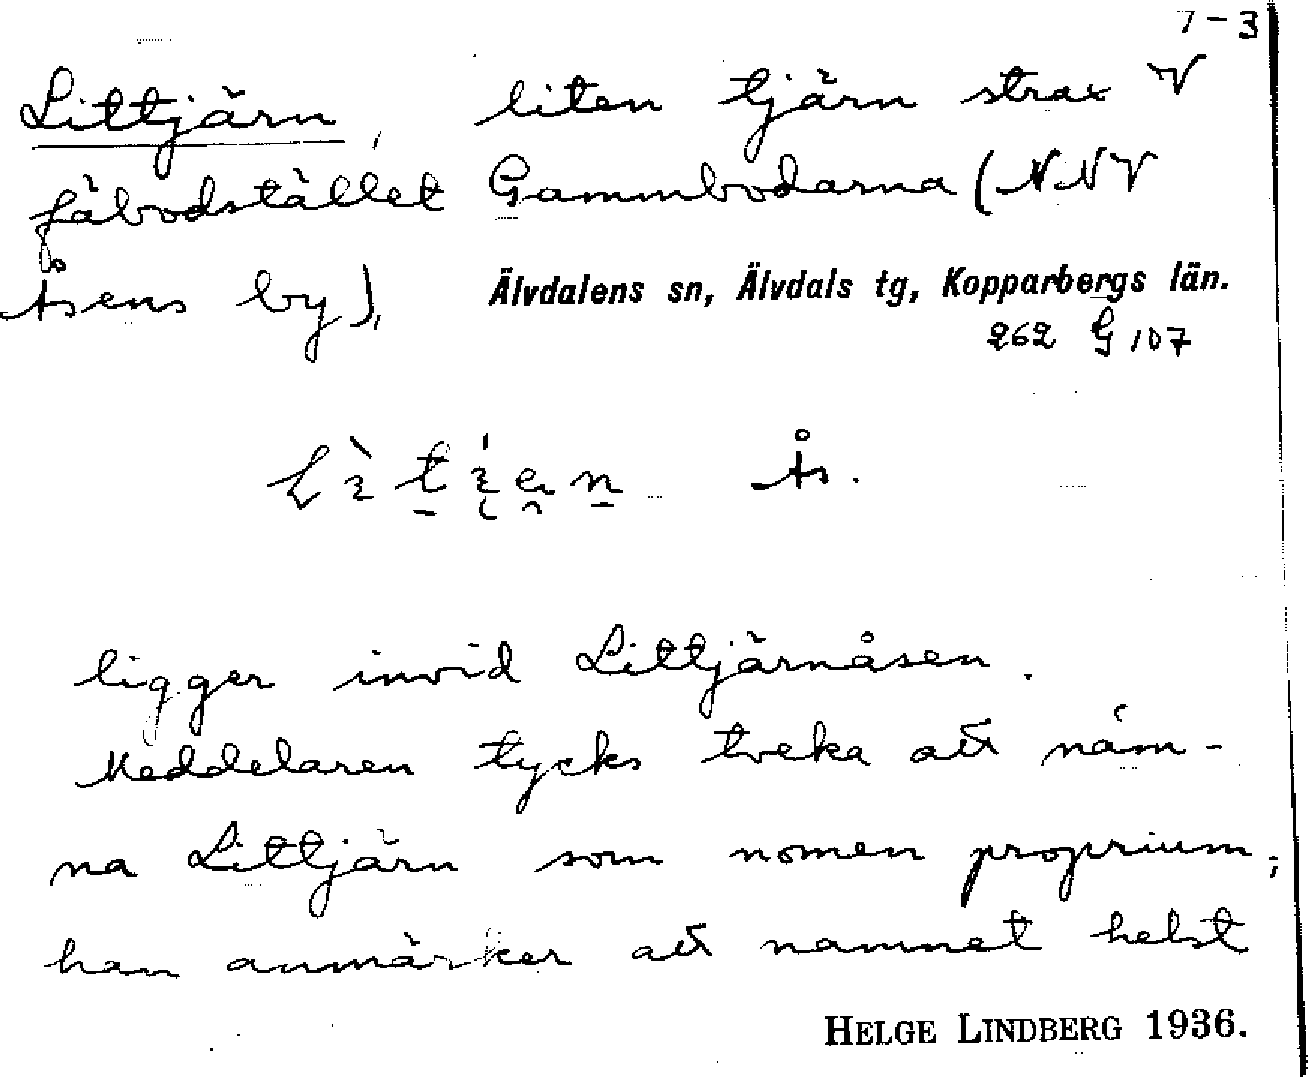 7-3
Littjärn, liten tjärn strax V
fäbodstället Gammbodarna (NNV
Åsens by),
Älvdalens sn, Älvdals tg, Kopparbergs län.
262 G 107
Ås.
ligger invid Littjärnåsen.
Meddelaren tycks tveka att näm-
na Littjärn som nomen proprium;
han anmärker att namnet helst
HELGE LINDBERG 1936.